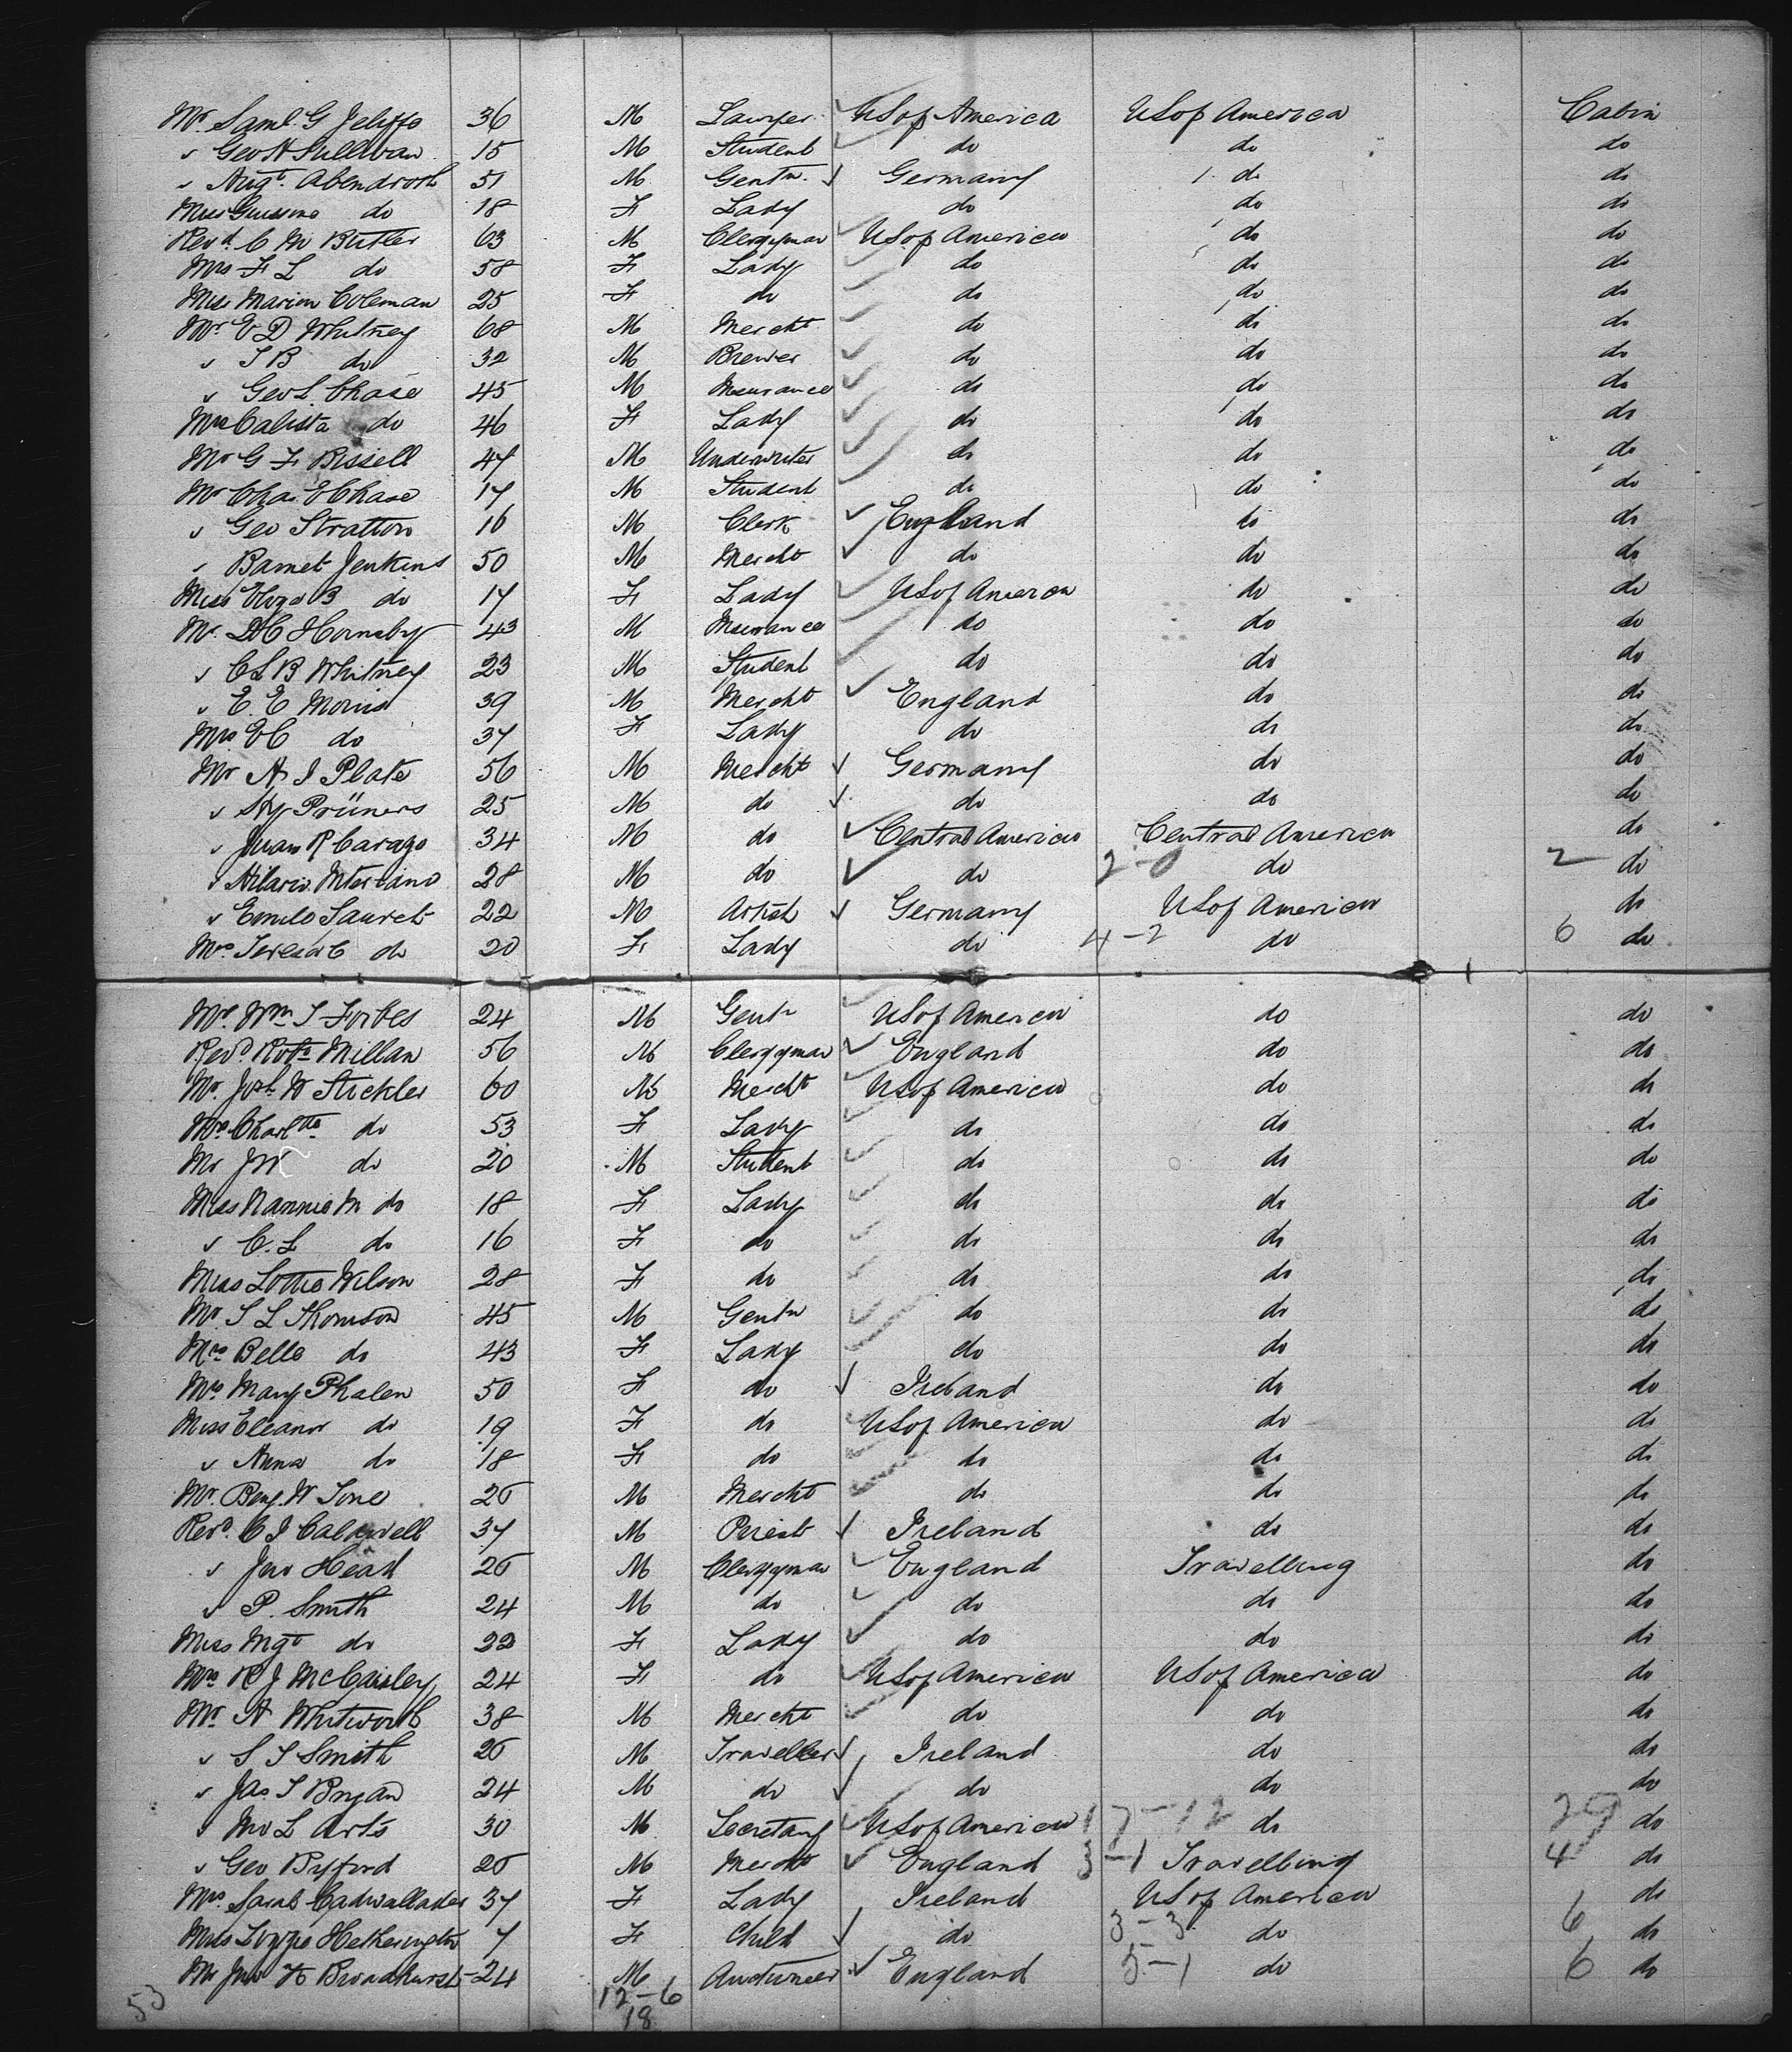 Mr Saml. G Jeliffe 36 M Lawyer US of America US of America Cabin
" Geo H Sullivan 15 M Student do do do
" Augt. Abendroth 51 M Gentn. Germany do do
Miss do 18 F Lady do do do
Revd. C M Butler 63 M Clergyman US of America do do
Mrs F L do 58 F Lady do do do
Miss Marion Coleman 25 F do do do do
Mr E D Whitney 68 M Mercht do do do
" S B do 32 M Brewer do do do
" Geo L Chase 45 M Insurance do do do
Mrs Calista do 46 F Lady do do do
Mr G F Bissell 47 M Underwriter do do do
Mr Chas E Chase 17 M Student do do do
" Geo Stratton 16 M Clerk England do do
" Barnet Jenkins 50 M Mercht do do do
Miss Eliza B do 17 F Lady US of America do do
Mr Hornsby 43 M Insurance do do do
" C L B Whitney 23 M Student do do do
" E. E Morris 39 M Mercht England do do
Mrs E C do 37 F Lady do do do
Mr A J Plate 56 M Mercht Germany do do
" Hy Prüners 25 M do do do do
" Juan R Carazo 34 M do Central America Central America do
" Hilario Interiano 28 M do do 2-0 do 2 do
" Emile Sauret 22 M Artist Germany US of America do
Mrs Teresa C do 20 F Lady do 4-2 do 6 do
Mr Wm S Forbes 24 M Gentn US of America do do
Revd. Robt Millan 56 M Clergyman England do do
Mr Josh W Stickler 60 M Mercht US of America do do
Mrs Charltte do 53 F Lady do do do
Mr J W do 20 M Student do do do
Miss Nannie M do 18 F Lady do do do
" C. L do 16 F do do do do
Miss Lottie Wilson 28 F do do do do
Mr S L Thomson 45 M Gentn do do do
Mrs Belle do 43 F Lady do do do
Mrs Mary Phalen 50 F do Ireland do do
Miss Eleanor do 19 F do US of America do do
" Anna do 18 F do do do do
Mr. Benj. W Tone 26 M Mercht do do do
Revd. C J Caldwell 37 M Priest Ireland do do
" Jno Head 26 M Clergyman England Travelling do
" P. Smith 24 M do do do do
Miss Mgt do 22 F Lady do do do
Mrs R J McCarsley 24 F do US of America US of America do
Mr A Whitworth 38 M Mercht do do do
" S T Smith 26 M Traveller Ireland do do
" Jas T Bryan 24 M do do do do
" M L Arts 30 M Secretary US of America 17-12 do 29 do
" Geo Byford 26 M Mercht England 3-1 Travelling 4 do
Mrs Sarah Cadwallader 37 F Lady Ireland US of America do
Miss Hetherington 7 F Child do 3-3 do 6 do
Mr Jno H Broadhurst 24 M Auctioneer England 5-1 do 6 do
12-6
18
53